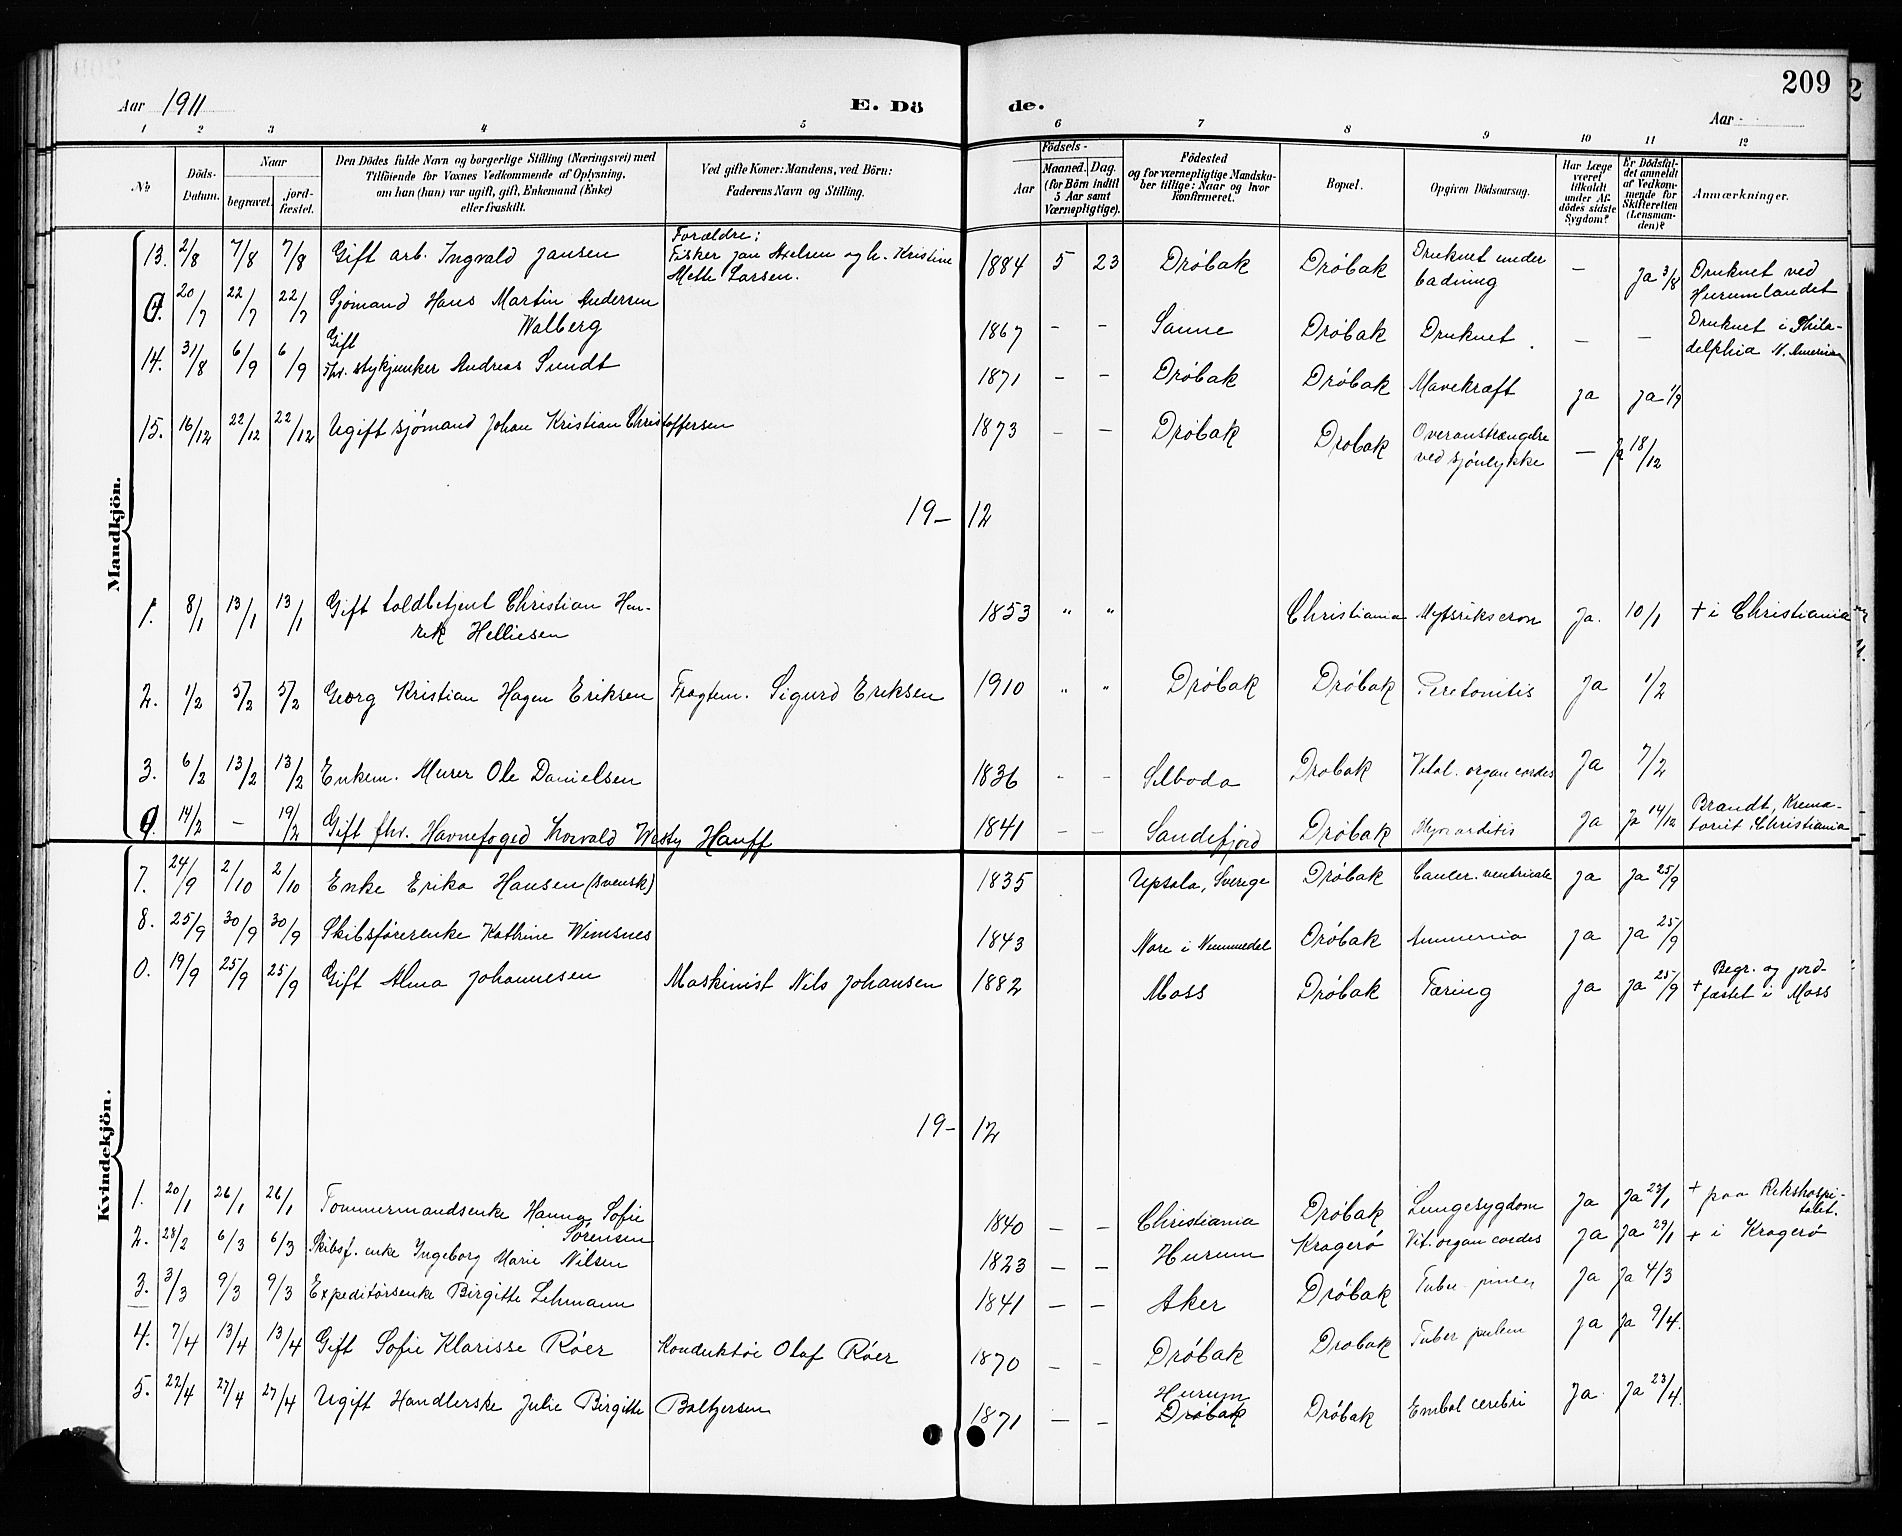 209
Aar 1911
E. Dö de.
Aar
1 2 3 4 5 6 7 8 9 10 11 12
No
Döds-Datum.
Naar
begravet.
jord-fæstet.
Den Dödes fulde Navn og borgerlige Stilling (Næringsvei) med
Tilföiende for Voxnes Vedkommende af Oplysning,
om han (hun) var ugift, gift, Enkemand (Enke)
eller fraskilt.
Ved gifte Koner: Mandens, ved Börn:
Faderens Navn og Stilling.
Födsels-
Aar
Maaned. Dag.
(for Börn indtil
5 Aar samt
Værnepligtige).
Födested
og for værnepligtige Mandska-
ber tillige: Naar og hvor
konfirmeret.
Bopæl.
Opgiven Dödsaarsag.
Har Læge
været
tilkaldt
under Af-
dödes sidste
Sygdom?
Er Dödsfal-
det anmeldt
af Vedkom-
mende for
Skifteretten
(Lensman-
den)?
Anmærkninger.
Mandkjön.
13. 2/8 7/8 7/8 Gift arb. Ingvald Jansen Forældre: Fisker Jan Axelsen og h. Kristine Mette Larsen. 1884 5 23 Drøbak Drøbak Druknet under badning — Ja 3/8 Druknet ved Hurumlandet
0. 20/7 22/7 22/7 Sjømand Hans Martin Andersen Walberg 1867 – – Sanne Drøbak Druknet. — — Druknet i Phila-delphia N. Amerika
14. 31/8 6/9 6/9 Gift fhv. stykjunker Andreas Sundt 1871 – – Drøbak Drøbak Mavekræft Ja Ja 1/9
15. 16/12 22/12 22/12 Ugift sjømand Johan Kristian Christoffersen 1873 – – Drøbak Drøbak Overanstrængelse ved sjøulykke — Ja 18/12
19–12
1. 8/1 13/1 13/1 Gift toldbetjent Christian Hen-rik Helliesen 1853 " " Christiania Ja. 10/1 + i Christiania
2. 1/2 5/2 5/2 Georg Kristian Hagen Eriksen Fragtem. Sigurd Eriksen 1910 " " Drøbak Drøbak Peretonitis Ja 1/2
3. 6/2 13/2 13/2 Enkem. Murer Ole Danielsen 1836 – – Silboda Drøbak Vitol. organ cordis Ja 7/2
0. 14/2 – 19/2 Gift fhv. Havnefoged Thorvald Westy Hauff 1841 – – Sandefjord Drøbak Myocarditis Ja Ja 14/12 Brændt, Krema-toriet i Christiania
Kvindekjön.
7. 24/9 2/10 2/10 Enke Erika Hansen (svensk) 1835 Upsala, Sverige Drøbak Cancer. ventricule Ja Ja 25/9
8. 25/9 30/9 30/9 Skibsførerenke Kathrine Wimsnes 1843 Nore i Nummedal Drøbak Ja Ja 25/9
0. 19/9 25/9 25/9 Gift Alma Johannesen Maskinist Nils Johansen 1882 Moss Drøbak Tæring Ja Ja 25/9 + Begr. og jord-fæstet i Moss
19–12
1. 20/1 26/1 26/1 Tømmermandsenke Hanna Sofie Sørensen 1840 – – Christiania Drøbak Lungesygdom Ja Ja 23/1 + paa Rikshospi-talet.
2. 28/2 6/3 6/3 Skibsf. enke Ingeborg Marie Nilsen 1823 – – Hurum Kragerø Vit. organ cordis Ja Ja 29/1 + i Kragerø
3. 3/3 9/3 9/3 Expeditørsenke Birgitte Lehmann 1841 – – Aker Drøbak Ja Ja 4/3
4. 7/4 13/4 13/4 Gift Sofie Klarisse Røer Konduktør Olaf Røer 1870 – – Drøbak Drøbak Tuber pulm Ja Ja 9/4.
5. 22/4 27/4 27/4 Ugift Handlerske Julie Birgitte Baltzersen 1871 – – Hurum Drøbak Drøbak Embol cerebri Ja Ja 23/4.